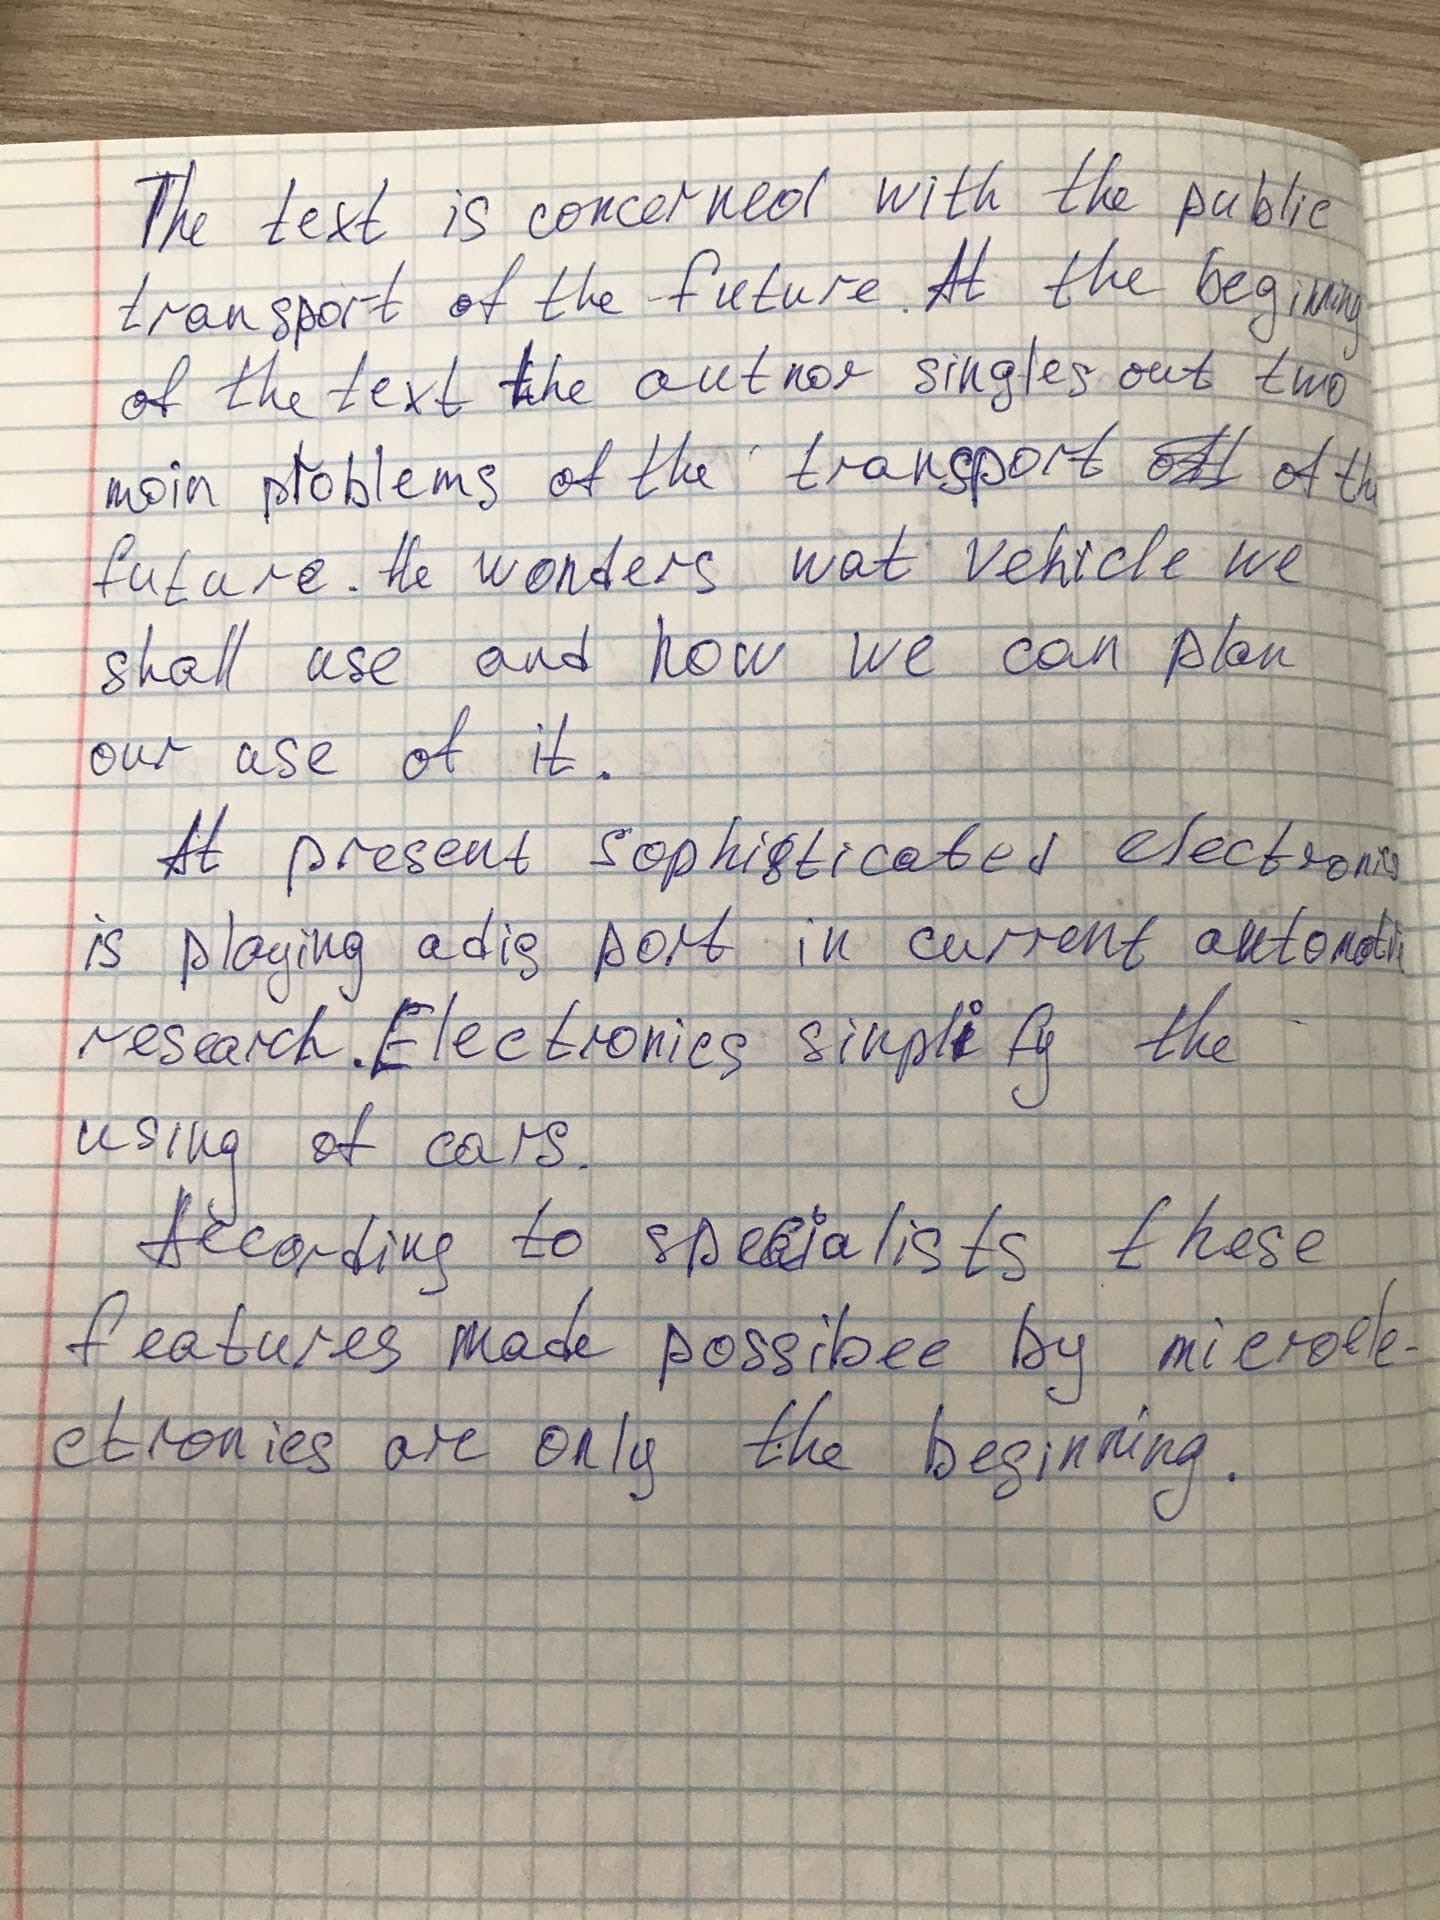 The text is concerned with the public
transport of the future. At the beginning
of the text the autnor singles out two
main problems of the transport of the
future. He wonders wat vehicle we
shall use and how we can plan
our use of it.
At present sophisticated electronics
is playing adig part in current automotiv
research. Electronics simplify the
using of cars.
According to specialists these
features made possibee by microele-
ctronics are only the beginning.